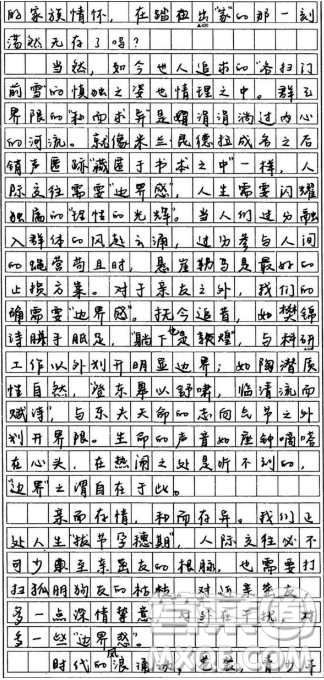 的家族情怀，在踏出“家”的那一刻
荡然无存了吗？
当然，如今世人追求的“各扫门
前雪的慎独之姿也情理之中。群己
界限的“和而求异”是涓涓淌过内心
的河流。就像米兰·昆德拉成名之后
销声匿迹“藏匿于书本之中”一样，人
际交往需要“边界感”，人生需要闪耀
独属的“理性的光辉”。当人们过分融
入群体的风起云涌，过分参与人间
的蝇营苟且时，悬崖勒马是最好的
止损方案。对于亲友之外，我们的
确需要“边界感”。抚今追昔，如樊锦
诗胼手胝足，“躺下也是敦煌”，与科研
工作以外划开明显边界；如陶潜质
性自然，“登东皋以舒啸，临清流而
赋诗”，与乐夫天命的志向之外
划开界限。生命的声音如座钟嘀嗒
在心头，在热闹之处是听不到的，
“边界”之谓自在于此。
亲而存情，和而存异。我们正
处人生“拔节孕穗期”，人际交往必不
可少囊至亲血友的根脉，也需要打
扫狐朋狗友的枯帖。对近亲密友，
多一点深情挚意，对外在干扰，
多一些“边界感”。
时代的风浪涌动，